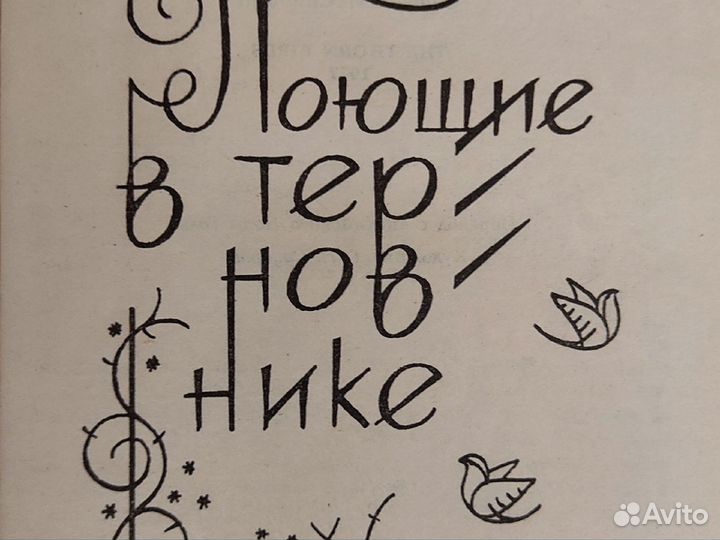 Поющие
в тер/
нов/
нике
Avito